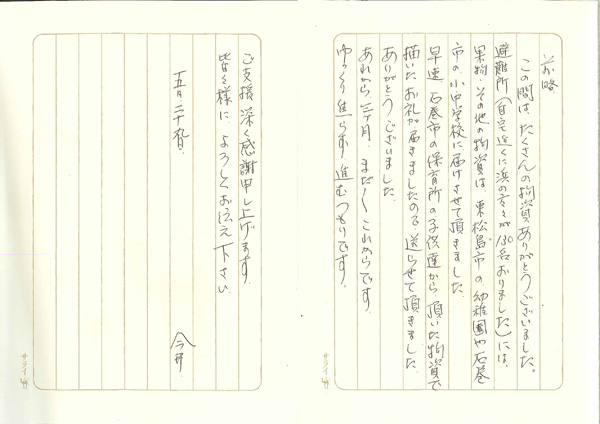 前略
この間は、たくさんの物資ありがとうございました。
避難所(自宅近くに浜の方々が130名おりました)には、
果物・その他の物資は 東松島市の 幼稚園や石巻
市の 小中学校に届けさせて頂きました。
早速 石巻市の保育所の子供達から 頂いた物資で
描いたお礼が届きましたので 送らせて頂きました。
ありがとうございました。
あれから三ヶ月、まだ〱これからです。
ゆっくり焦らず進むつもりです。
ご支援 深く感謝申し上げます。
皆々様に よろしくお伝え下さい
五月二十
今井
サライ
サライ